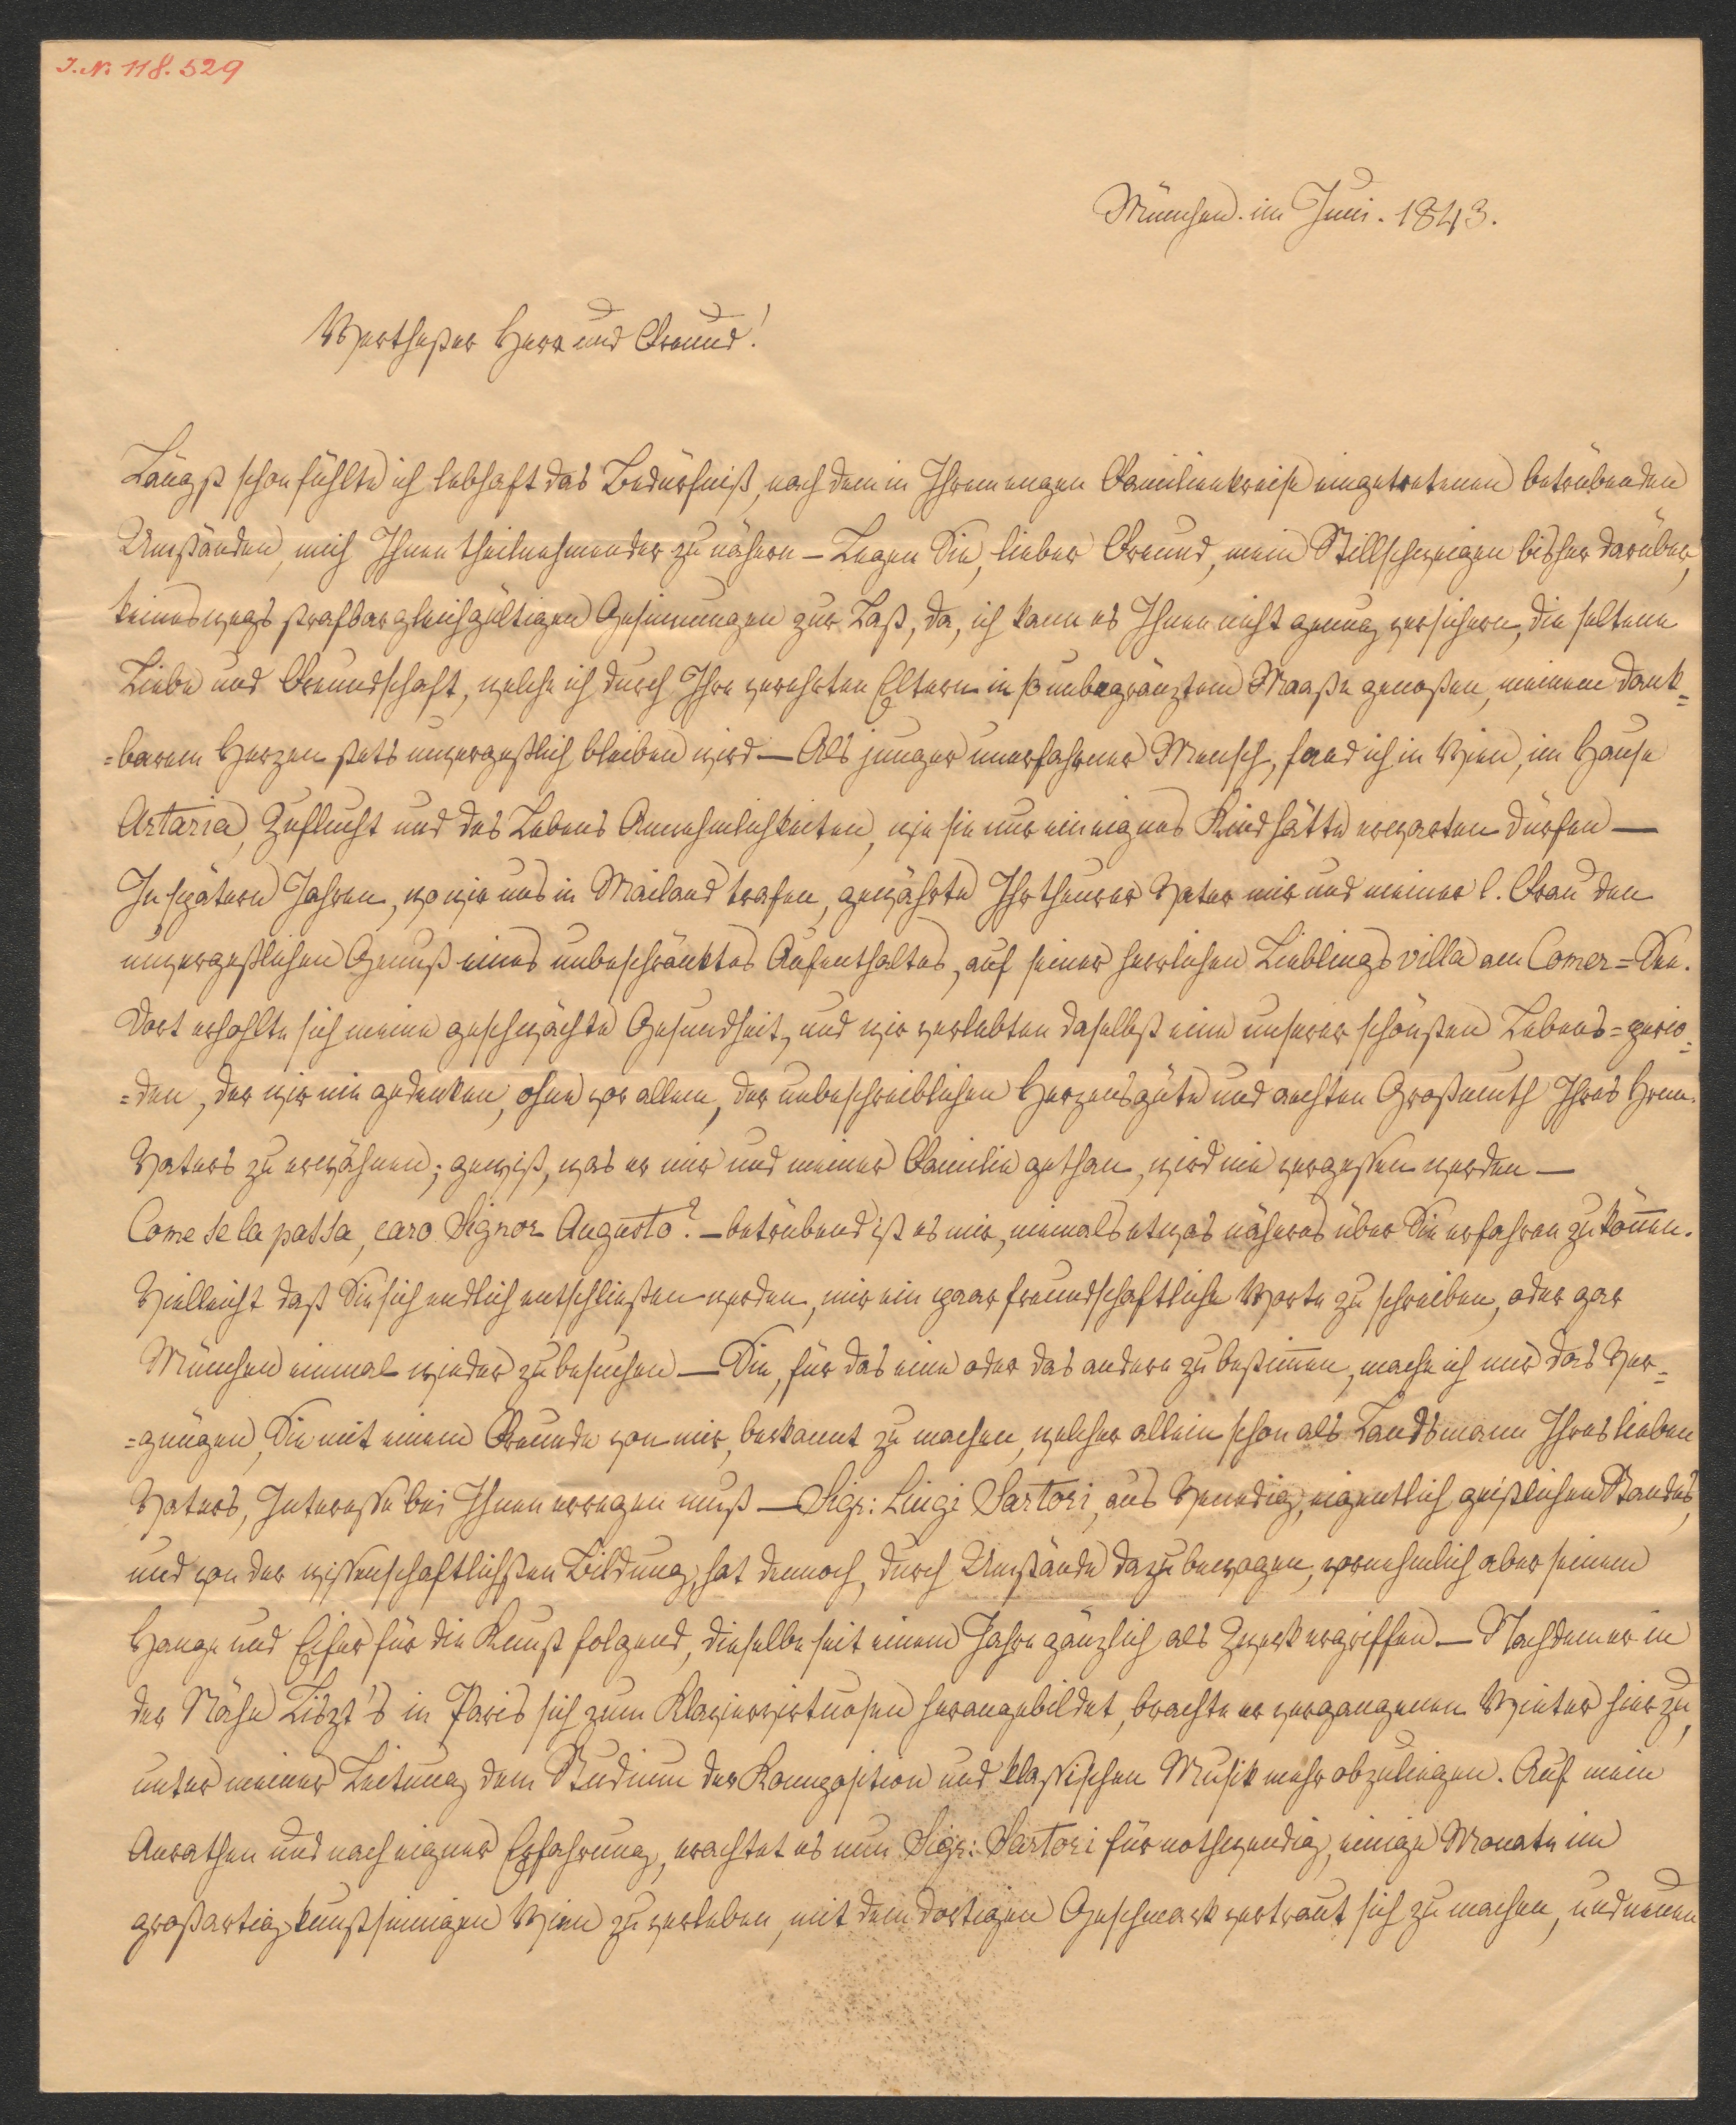 I. N. 118.529
München. im Juni. 1843.
Werthester Herr und Freund!
Längst schon fühlte ich lebhaft das Bedürfniß, nach dem in Ihrem engen Familienkreise eingetretenen betrübenden
Umständen, mich Ihnen theilnehmender zu nähern – Legen Sie, lieber Freund, mein Stillschweigen bisher darüber,
keineswegs strafbar gleichgültigen Gesinnungen zur Last, da, ich kann es Ihnen nicht genug versichern, die seltene
Liebe und Freundschaft, welche ich durch Ihre verehrten Eltern in so unbegränztem Maaße genoßen, meinem dank=
=barem Herzen stets unvergeßlich bleiben wird — Als junger unerfahrner Mensch, fand ich in Wien, im Hause
Artaria, Zuflucht und des Lebens Annehmlichkeiten, wie sie nur ein eignes Kind hätte erwarten dürfen —
In spätern Jahren, wo wir uns in Mailand trafen, gewährte Ihr theurer Vater mir und meiner l. Frau den
unvergeßlichen Genuß eines unbeschränktes Aufenthaltes, auf seiner herrlichen Lieblings villa am Comer=See.
Dort erhohlte sich meine geschwächte Gesundheit, und wir verlebten daselbst eine unserer schönsten Lebens=perio=
=den, der wir nie gedenken, ohne vor allem, der unbeschreiblichen Herzensgüte und aechten Großmuth Ihres Hrrn.
Vaters zu erwähnen; gewiß, was er mir und meiner Familie gethan, wird nie vergessen werden —
Come se la passa, caro Signor Augusto? – betrübend ist es mir, niemals etwas näheres über Sie erfahren zu können.
Vielleicht daß Sie sich endlich entschließen werden, mir ein paar freundschaftliche Worte zu schreiben, oder gar
München einmal wieder zu besuchen — Sie, für das eine oder das andere zu bestimmen, mache ich mir das Ver=
=gnügen, Sie mit einem Freunde von mir, bekannt zu machen, welcher allein schon als Landsmann Ihres lieben
Vaters, Interesse bei Ihnen erregen muß — Sigr: Luigi Sartori, aus Venedig, eigentlich geistlichen Standes,
und von der wissenschaftlichsten Bildung, hat dennoch, durch Umstände dazu bewogen, vornehmlich aber seinem
Hange und Eifer für die Kunst folgend, dieselbe seit einem Jahre gänzlich als Zweck ergriffen — Nachdem er in
der Nähe Liszt's in Paris sich zum Klaviervirtuosen herangebildet, brachte er vergangenen Winter hier zu,
unter meiner Leitung dem Studium der Komposition und klassischen Musik mehr obzuliegen. Auf mein
Anrathen und nach eigner Erfahrung, erachtet es nun Sigr: Sartori für nothwendig, einige Monate im
großartig kunstsinnigen Wien zu verleben, mit dem dortigen Geschmack vertraut sich zu machen, und neuen